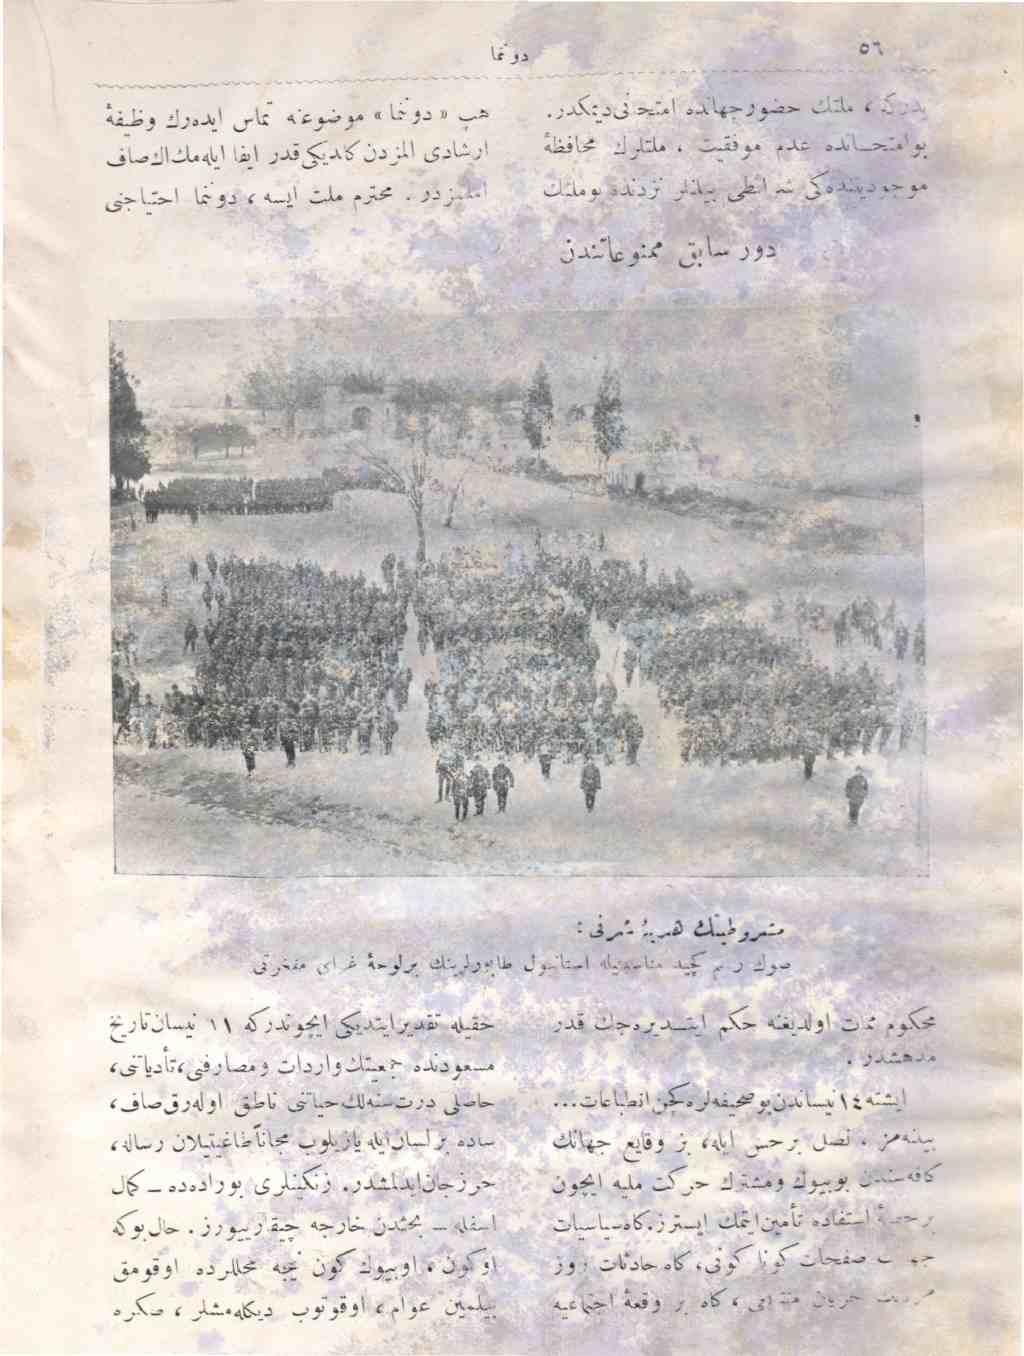 ٥٦
دوننما
يدركه ، ملتك حضور جهانده امتحانى ديمكدر .
بوامتحانده عدم موفقيت ، ملتلرك محافظهٔ
موجوديتنده كى شرائطى بيلنلر نزدنده بوملتك
هپ « دوننما » موضوعنه تماس ايده رك وظيفهٔ
ارشادى المزدن كلديكى قدر ايفا ايله مك اك صاف
املمزدر . محترم ملت ايسه ، دوننما احتياجنى
دور سابق ممنوعاتندن
مشروطيتك هديهٔ شرفى :
صوك رسم كچيد مناسبتيله استانبول طابورلرينك بر لوحهٔ غراى مفخرتى
محكوم ممات اولديغنه حكم ايتديره جك قدر
مدهشدر .
ايشته ١٤ نيساندن بو صحيفه لره كچن انطباعات ...
بينه مز . نصل بر حس ايله ، بز وقايع جهانك
كافه سندن بوبيوك ومشترك حركت مليه ايچون
بر حصهٔ استفاده تأمين ايتمك ايسترز . كاه سياسيات
صفحات كوناكونى ، كاه حادثات روز
جريان ، كاه بر وقعهٔ اجتماعيه
حقيله تقدير ايتديكى ايچوندركه ١١ نيسان تاريخ
مسعودنده جمعيتك واردات ومصارفنى ، تأدياتنى ،
حاصلى درت سنه لك حياتنى ناطق اوله رق صاف ،
ساده بر لسان ايله يازيلوب مجاناً طاغيتيلان رساله ،
حرز جان ايدلمشدر . زنكينلرى بوراده ده ـ كمال
اسفله ـ بحثدن خارجه چيقارييورز . حال بوكه
اوكون ، اوبيوك كون نيجه محللرده اوقومق
بيلمين عوام ، اوقوتوب ديكله مشلر ، صكره